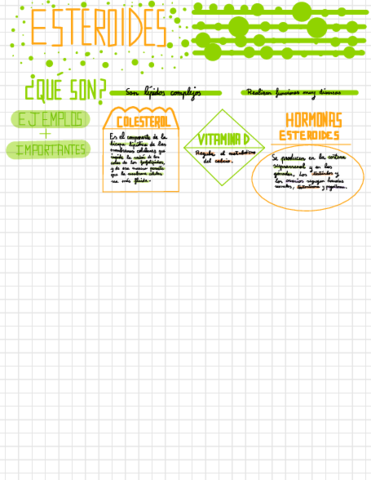 ESTEROIDES
¿QUÉ SON?
Son lípidos complejos
Realizan funciones muy diversas
EJEMPLOS
+
IMPORTANTES
COLESTEROL
Es el componente de la
bicapa lipídica de las
membranas celulares que
impide la unión de las
colas de los fosfolípidos,
y de esa manera permite
que la membrana celular
sea más fluida.
VITAMINA D
Regula el metabolismo
del calcio.
HORMONAS
ESTEROIDES
Se producen en la corteza
suprarrenal y en las
gónadas, los testículos y
los ovarios segregan hormonas
sexuales, testosterona y progesterona.